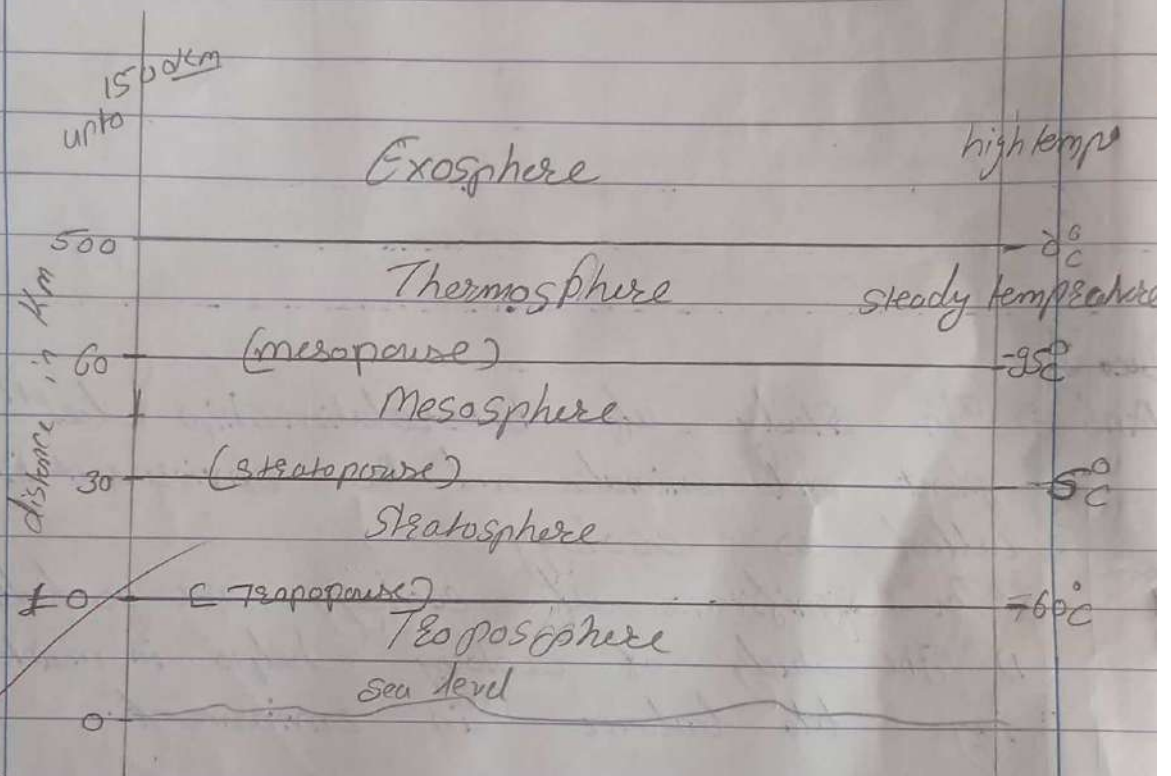 1500km
upto
Exosphere
high temps
500
Thermosphere
steady temprature
60
(mesopause)
-95°C
Mesosphere
distance in Km
30
(stratopause)
5°C
Stratosphere
10
(Tropopause)
-60°C
Troposphere
sea level
0